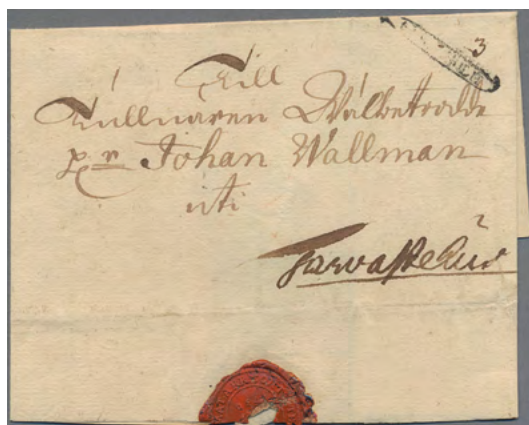 3
Till
Tullnären Wälbetrodde
H:r Johan Wallman
uti
Tavastehus